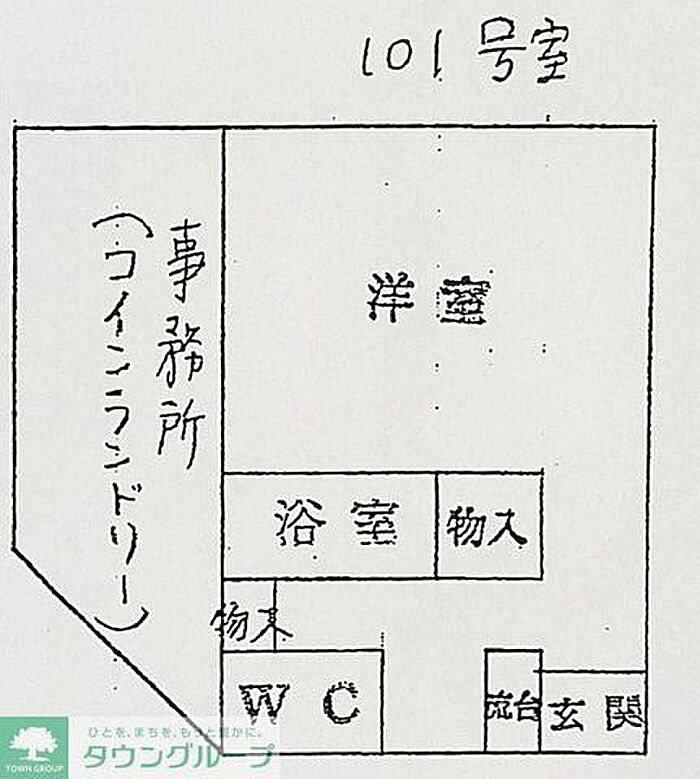 101号室
事務所
(コインランドリー)
洋室
浴室
物入
物入
WC
流台
玄関
ひとを、まちを、もっと豊かに。
タウングループ
TOWN GROUP